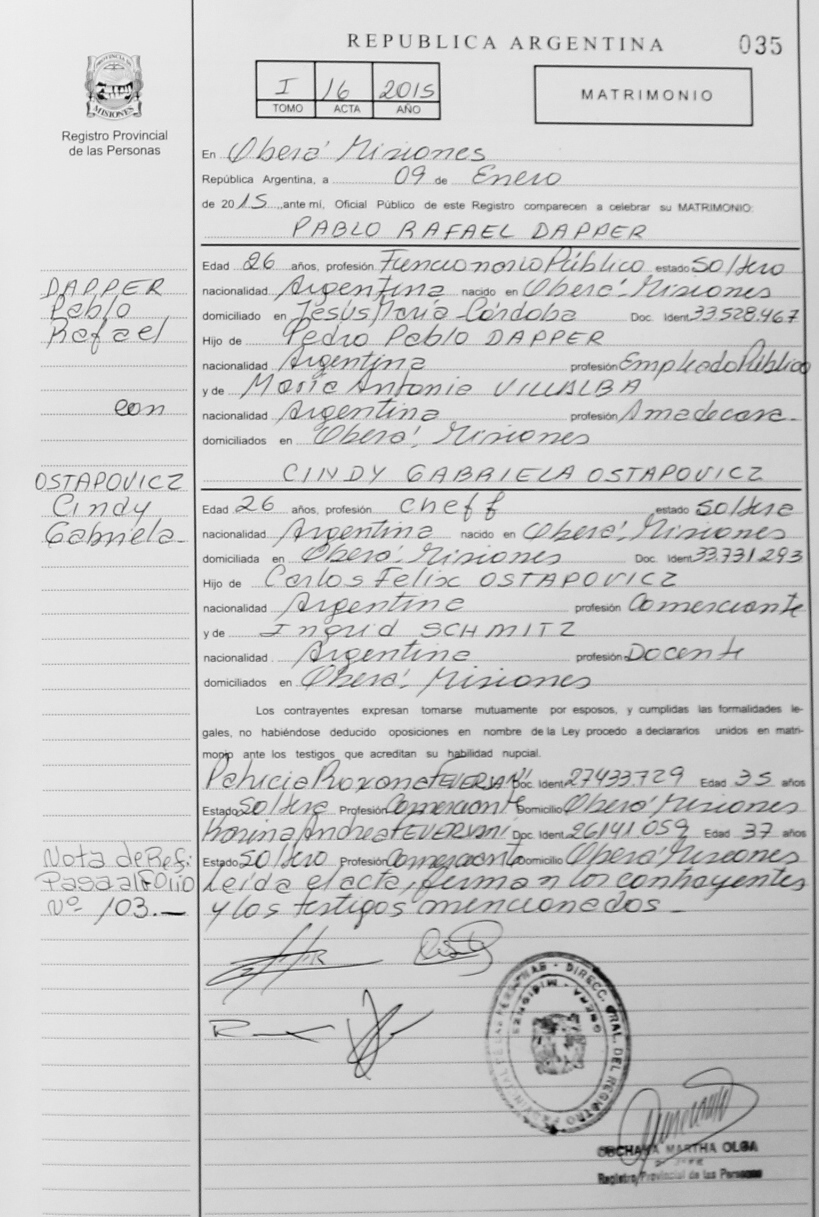 REPUBLICA ARGENTINA
035
PROVINCIA DE MISIONES
Registro Provincial
de las Personas
I 16 2015
TOMO ACTA AÑO
MATRIMONIO
En Oberá Misiones
República Argentina, a 09 de Enero
de 2015 ante mí, Oficial Público de este Registro comparecen a celebrar su MATRIMONIO:
PABLO RAFAEL DAPPER
DAPPER
Pablo
Rafael
con
OSTAPOVICZ
Cindy
Gabriela
Edad 26 años, profesión Funcionario Público estado Soltero
nacionalidad Argentina nacido en Oberá, Misiones
domiciliado en Jesús María-Córdoba Doc. Ident 33.528.467
Hijo de Pedro Pablo DAPPER
nacionalidad Argentina profesión Empleado Público
y de María Antonia VILLALBA
nacionalidad Argentina profesión Ama de casa
domiciliados en Oberá, Misiones
CINDY GABRIELA OSTAPOVICZ
Edad 26 años, profesión cheff estado soltera
nacionalidad Argentina nacido en Oberá, Misiones
domiciliada en Oberá, Misiones Doc. Ident 33.731.293
Hijo de Carlos Felix OSTAPOVICZ
nacionalidad Argentina profesión Comerciante
y de Ingrid SCHMITZ
nacionalidad Argentina profesión Docente
domiciliados en Oberá, Misiones
Los contrayentes expresan tomarse mutuamente por esposos, y cumplidas las formalidades le-
gales, no habiéndose deducido oposiciones en nombre de la Ley procedo a declararlos unidos en matri-
monio ante los testigos que acreditan su habilidad nupcial.
Patricia Roxana Doc. Ident 27433729 Edad 35 años
Estado Soltera Profesión Comerciante Domicilio Oberá Misiones
Karina Andrea Doc. Ident. 26141.059 Edad 37 años
Estado Soltero Profesión Comerciante Domicilio Oberá Misiones
Leída el acta, firman los contrayentes
y los testigos mencionados
Nota de Ref:
Pasa al FOLIO
Nº 103.-
DIRECC. GRAL. DEL REGISTRO PROVINCIAL DE LAS PERSONAS
OBERA - MISIONES
MARTHA OLGA
Registro Provincial de las Personas